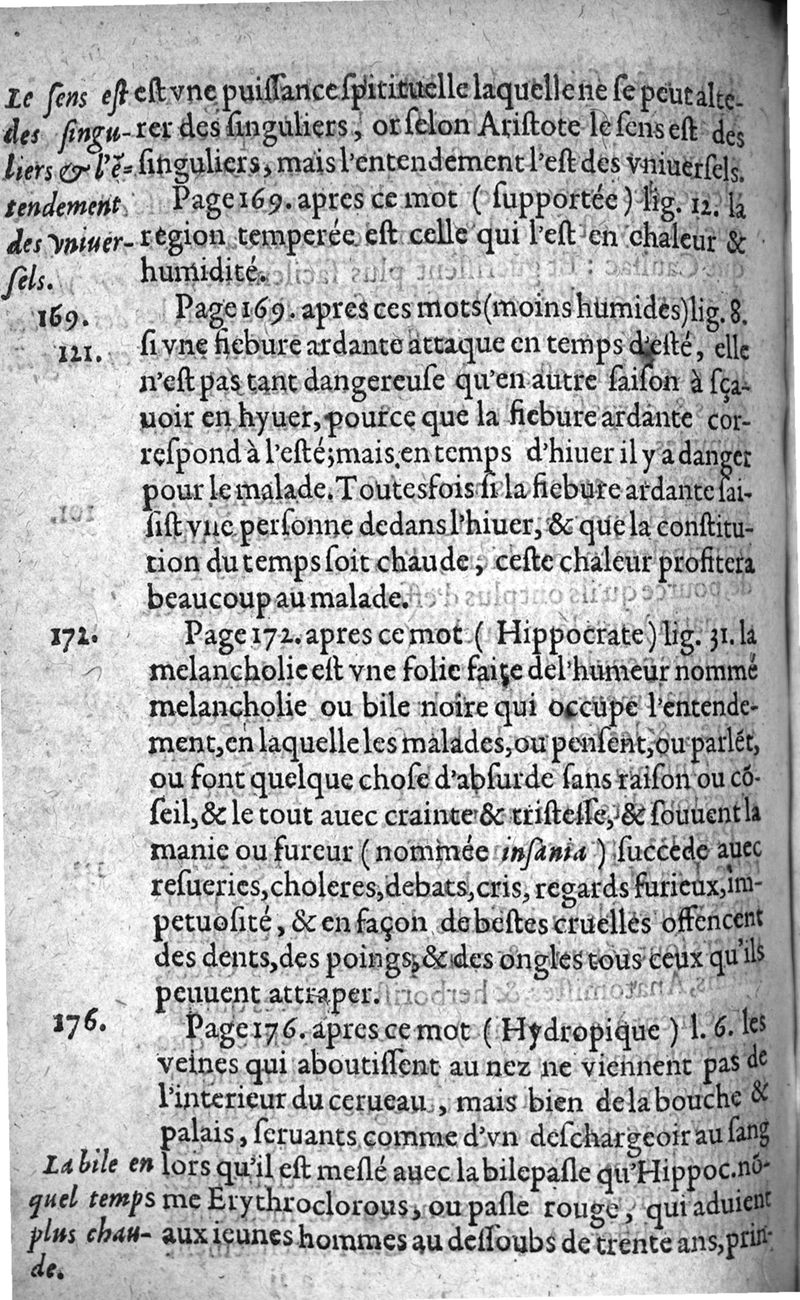 Le ſens eſt
des ſingu-
liers & l'ẽ-
tendement
des vniuer-
ſels.
eſt vne puiſſance ſpitituelle laquelle ne ſe peut alte-
rer des ſinguliers, or ſelon Ariſtote le ſens eſt des
ſinguliers, mais l'entendement l'eſt des vniuerſels.
Page 169. apres ce mot ( ſupportée ) lig. 12. la
region temperée eſt celle qui l'eſt en chaleur &
humidité.
169.
121.
Page 169. apres ces mots (moins humides) lig. 8.
ſi vne fiebure ardante attaque en temps d'eſté, elle
n'eſt pas tant dangereuſe qu'en autre ſaiſon à ſça-
uoir en hyuer, pource que la fiebure ardante cor-
reſpond à l'eſté; mais en temps d'hiuer il y a danger
pour le malade. Toutesfois ſi la fiebure ardante ſai-
ſiſt vne perſonne dedans l'hiuer, & que la conſtitu-
tion du temps ſoit chaude, ceſte chaleur profitera
beaucoup au malade.
172.
Page 172. apres ce mot ( Hippocrate ) lig. 31. la
melancholie eſt vne folie faite de l'humeur nommé
melancholie ou bile noire qui occupe l'entende-
ment, en laquelle les malades, ou penſent, ou parlẽt,
ou font quelque choſe d'abſurde ſans raiſon ou cõ-
ſeil, & le tout auec crainte & triſteſſe, & ſouuent la
manie ou fureur ( nommée inſania ) ſuccede auec
reſueries, choleres, debats, cris, regards furieux, im-
petuoſité, & en façon de beſtes cruelles offencent
des dents, des poings, & des ongles tous ceux qu'ils
peuuent attraper.
176.
Page 176. apres ce mot ( Hydropique ) l. 6. les
veines qui aboutiſſent au nez ne viennent pas de
l'interieur du cerueau, mais bien de la bouche &
palais, ſeruants comme d'vn deſchargeoir au ſang
lors qu'il eſt meſlé auec la bile paſle qu'Hippoc. nõ-
me Erythroclorous, ou paſle rouge, qui aduient
aux ieunes hommes au deſſoubs de trente ans, prin-
La bile en
quel temps
plus chau-
de.